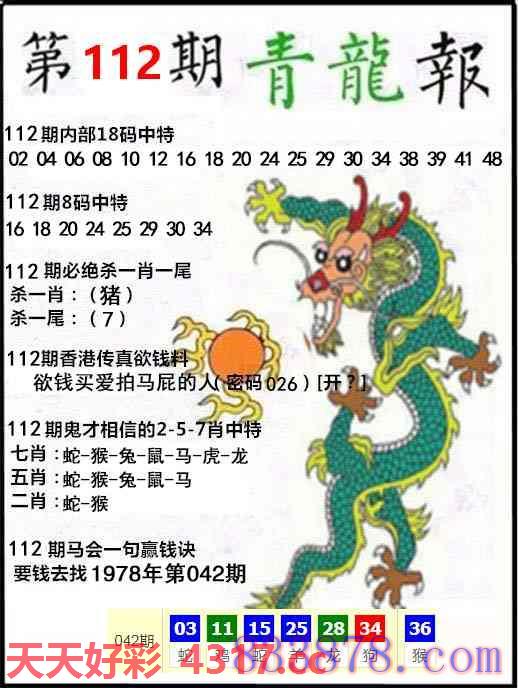 第112期青龍報
112期内部18码中特
02 04 06 08 10 12 16 18 20 24 25 29 30 34 38 39 41 48
112期8码中特
16 18 20 24 25 29 30 34
112期必绝杀一肖一尾
杀一肖:(猪)
杀一尾:(7)
112期香港传真欲钱料
欲钱买爱拍马屁的人(密码026)[开?]
112期鬼才相信的2-5-7肖中特
七肖:蛇-猴-兔-鼠-马-虎-龙
五肖:蛇-猴-兔-鼠-马
二肖:蛇-猴
112期马会一句赢钱诀
要钱去找1978年第042期
042期 03 11 15 25 28 34 36
蛇 鸡 蛇 羊 龙 狗 猴
天天好彩 4317.cc